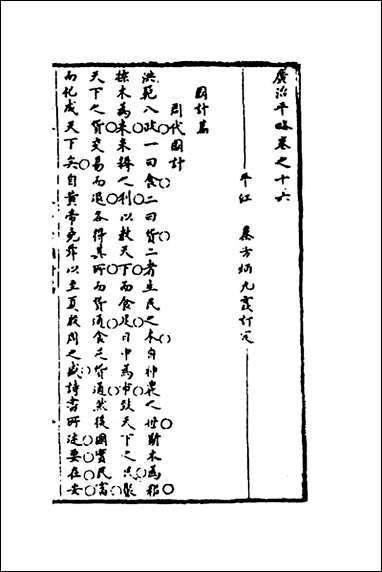 廣治平略卷之十六
平江 蔡方炳九霞訂定
國計篇
列代國計
洪範八政一曰食二曰貨二者生民之本自神農之世斲木為耜
揉木為耒耒耨之利以教天下而食足日中為市致天下之民聚
天下之貨交易而退各得其所而貨通食足貨通然後國實民富
而化成天下矣自黃帝堯舜以至夏殷周之盛詩書所述要在安